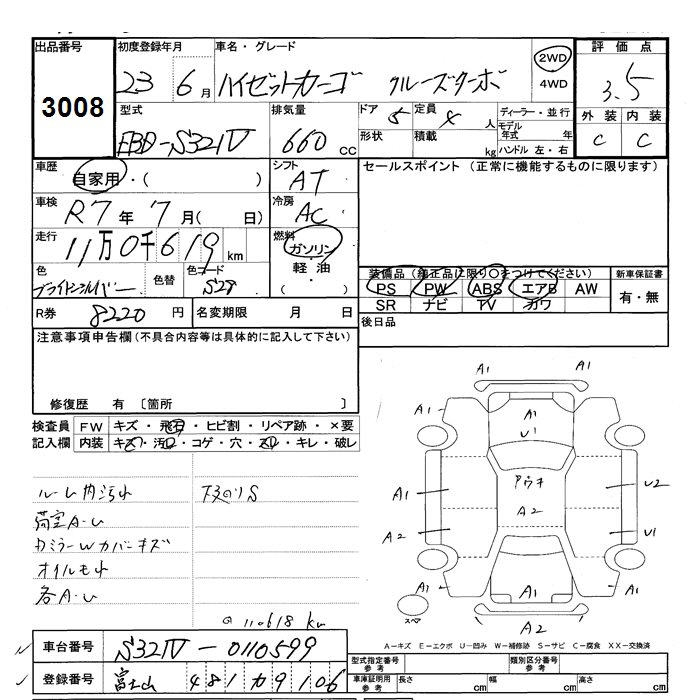 出品番号 初度登録年月 車名・グレード 評価点
3008 23 6月 ハイゼットカーゴ クルーズターボ 2WD 4WD 3.5
型式 排気量 ドア 5 定員 4人 ディーラー・並行 外装 内装
EBD-S321V 660 CC 形状 積載 kg モデル年式 年 ハンドル 左・右 C C
車歴 自家用・( ) シフト AT セールスポイント (正常に機能するものに限ります)
車検 R7年 7月( 日) 冷房 AC
走行 11万0千619km 燃料 ガソリン・軽油・( )
色 ブライトシルバー 色替 色コード S28
装備品(純正品に限り○をつけてください) 新車保証書
PS PW ABS エアB AW 有・無
SR ナビ TV カワ
R券 8220円 名変期限 月 日 後日品
注意事項申告欄(不具合内容等は具体的に記入して下さい)
修復歴 有 〔箇所 〕
検査員記入欄 FW キズ・飛石・ヒビ割・リペア跡・×要
内装 キズ・汚レ・コゲ・穴・スレ・キレ・破レ
ルーム内汚れ 下廻りS
荷室A・U
カミラーWカバーキズ
オイルモレ
各A・U
@110618 km
A1 A1
A1 A1 A1
U1
アウキ
A1 U2
A2
A2 U1
A1 A1 A1
スペア A2
A-キズ E-エクボ U-凹み W-補修跡 S-サビ C-腐食 XX-交換済
車台番号 S321V-0110599
登録番号 富士山 481 カ 9106
型式指定番号 参考 類別区分番号 参考
車庫証明用 参考 長さ cm 幅 cm 高さ cm